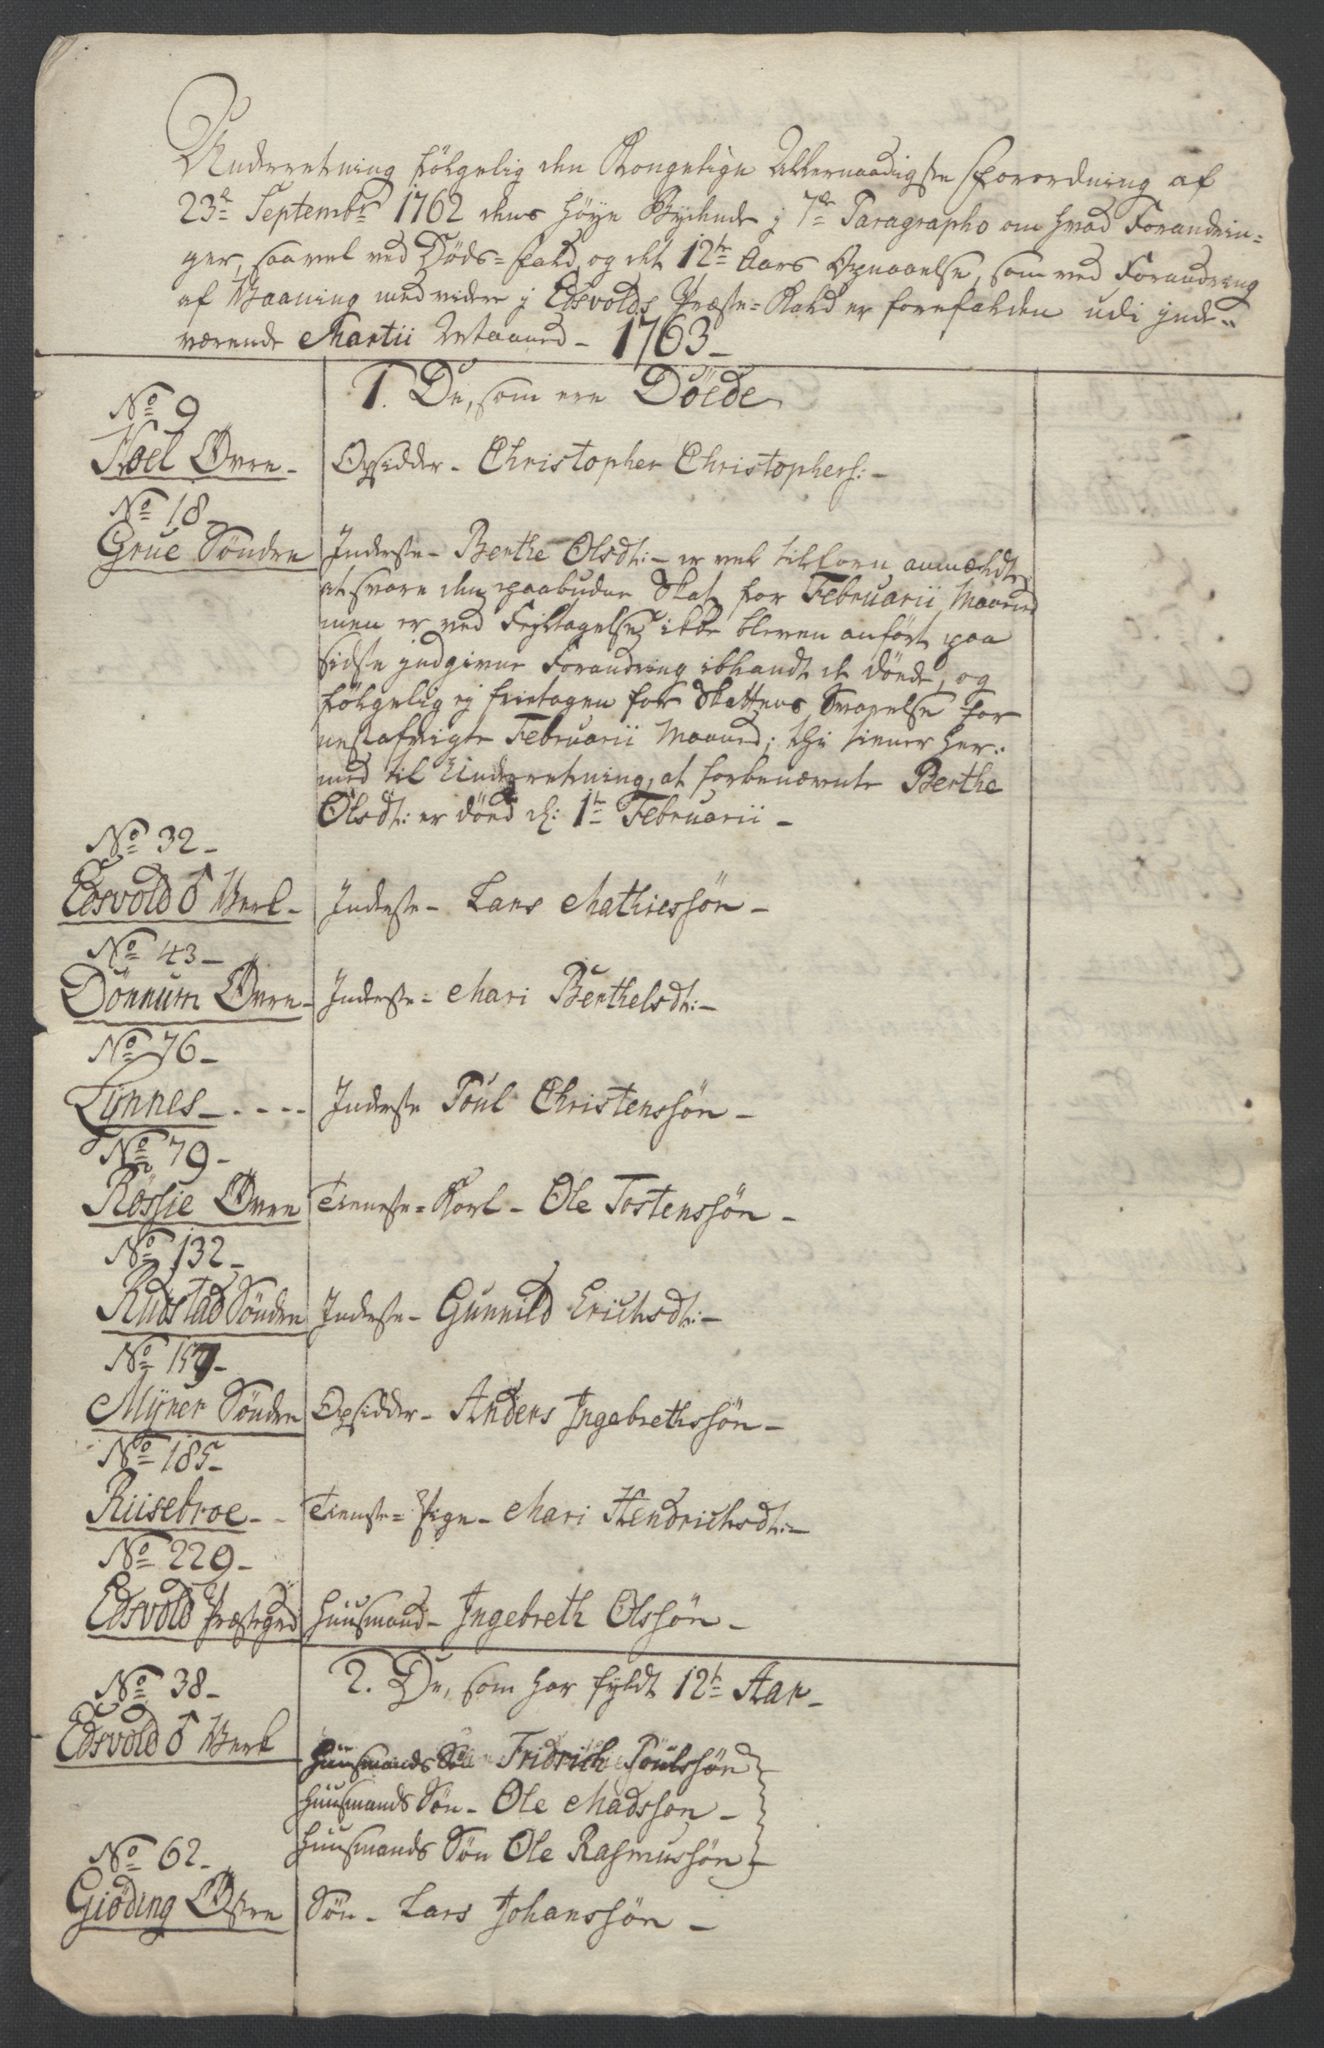 Underretning følgelig den Kongelige Allernaadigste Forordning af
23de Septembr 1762 dens høye Bydende j 7de Paragrapho om hvad Forandrin=
ger, saavel ved Døds=fald og det 12te Aars Opnaaelse, som ved Forandring
af Vaaning med videre j Edsvolds Præste=Kald er forefalden udi jnde=
værende Martii Maaned - 1763 -
1. De, som ere Döede
No 9
Hoel Øvre - Opsidder - Christopher Christophers: -
No 18 -
Grue Söndre Inderste - Berthe Olsdt: - er vel tilforn anmældt
at svare den paabudne Skat for Februarii Maaned
men er ved Fejltagelse ikke bleven anført paa
sidste jndgivne Forandring iblandt de döede, og
følgelig ej fritagen for Skattens Svarelse for
nestafvigte Februarii Maaned; thi tiener her=
med til Underretning, at forbenævnte Berthe
Olsdt: er döed d: 1te Februarii -
No 32 -
Edsvold J Verk - Inderste - Lars Mathiessøn -
No 43 -
Dönnum Øvre - Inderste - Mari Berthelsdt: -
No 76 -
Lynnes - . - - - Inderste Poul Christenssøn -
No 79 -
Rössie Øvre Tieneste = Karl - Ole Tostenssøn -
No 132 -
Rudstad Söndre Inderste - Gunnild Erichsdt: -
No 159 -
Myrer Söndre Opsidder - Anders Ingebrethssøn -
No 185 -
Riisebroe - - Tieneste = Pige - Mari Hendrichsdt: -
No 229 -
Edsvold Præstegrd Huusmand - Ingebreth Olssøn -
2. De, som har fyldt 12te Aar -
No 38 -
Edsvold J Verk Huusmands Søn Fridrich Poulssøn
Huusmands Søn - Ole Madssøn -
Huusmands Søn Ole Rasmussøn -
No 62 -
Giöding Østre Søn - Lars Johanssøn -